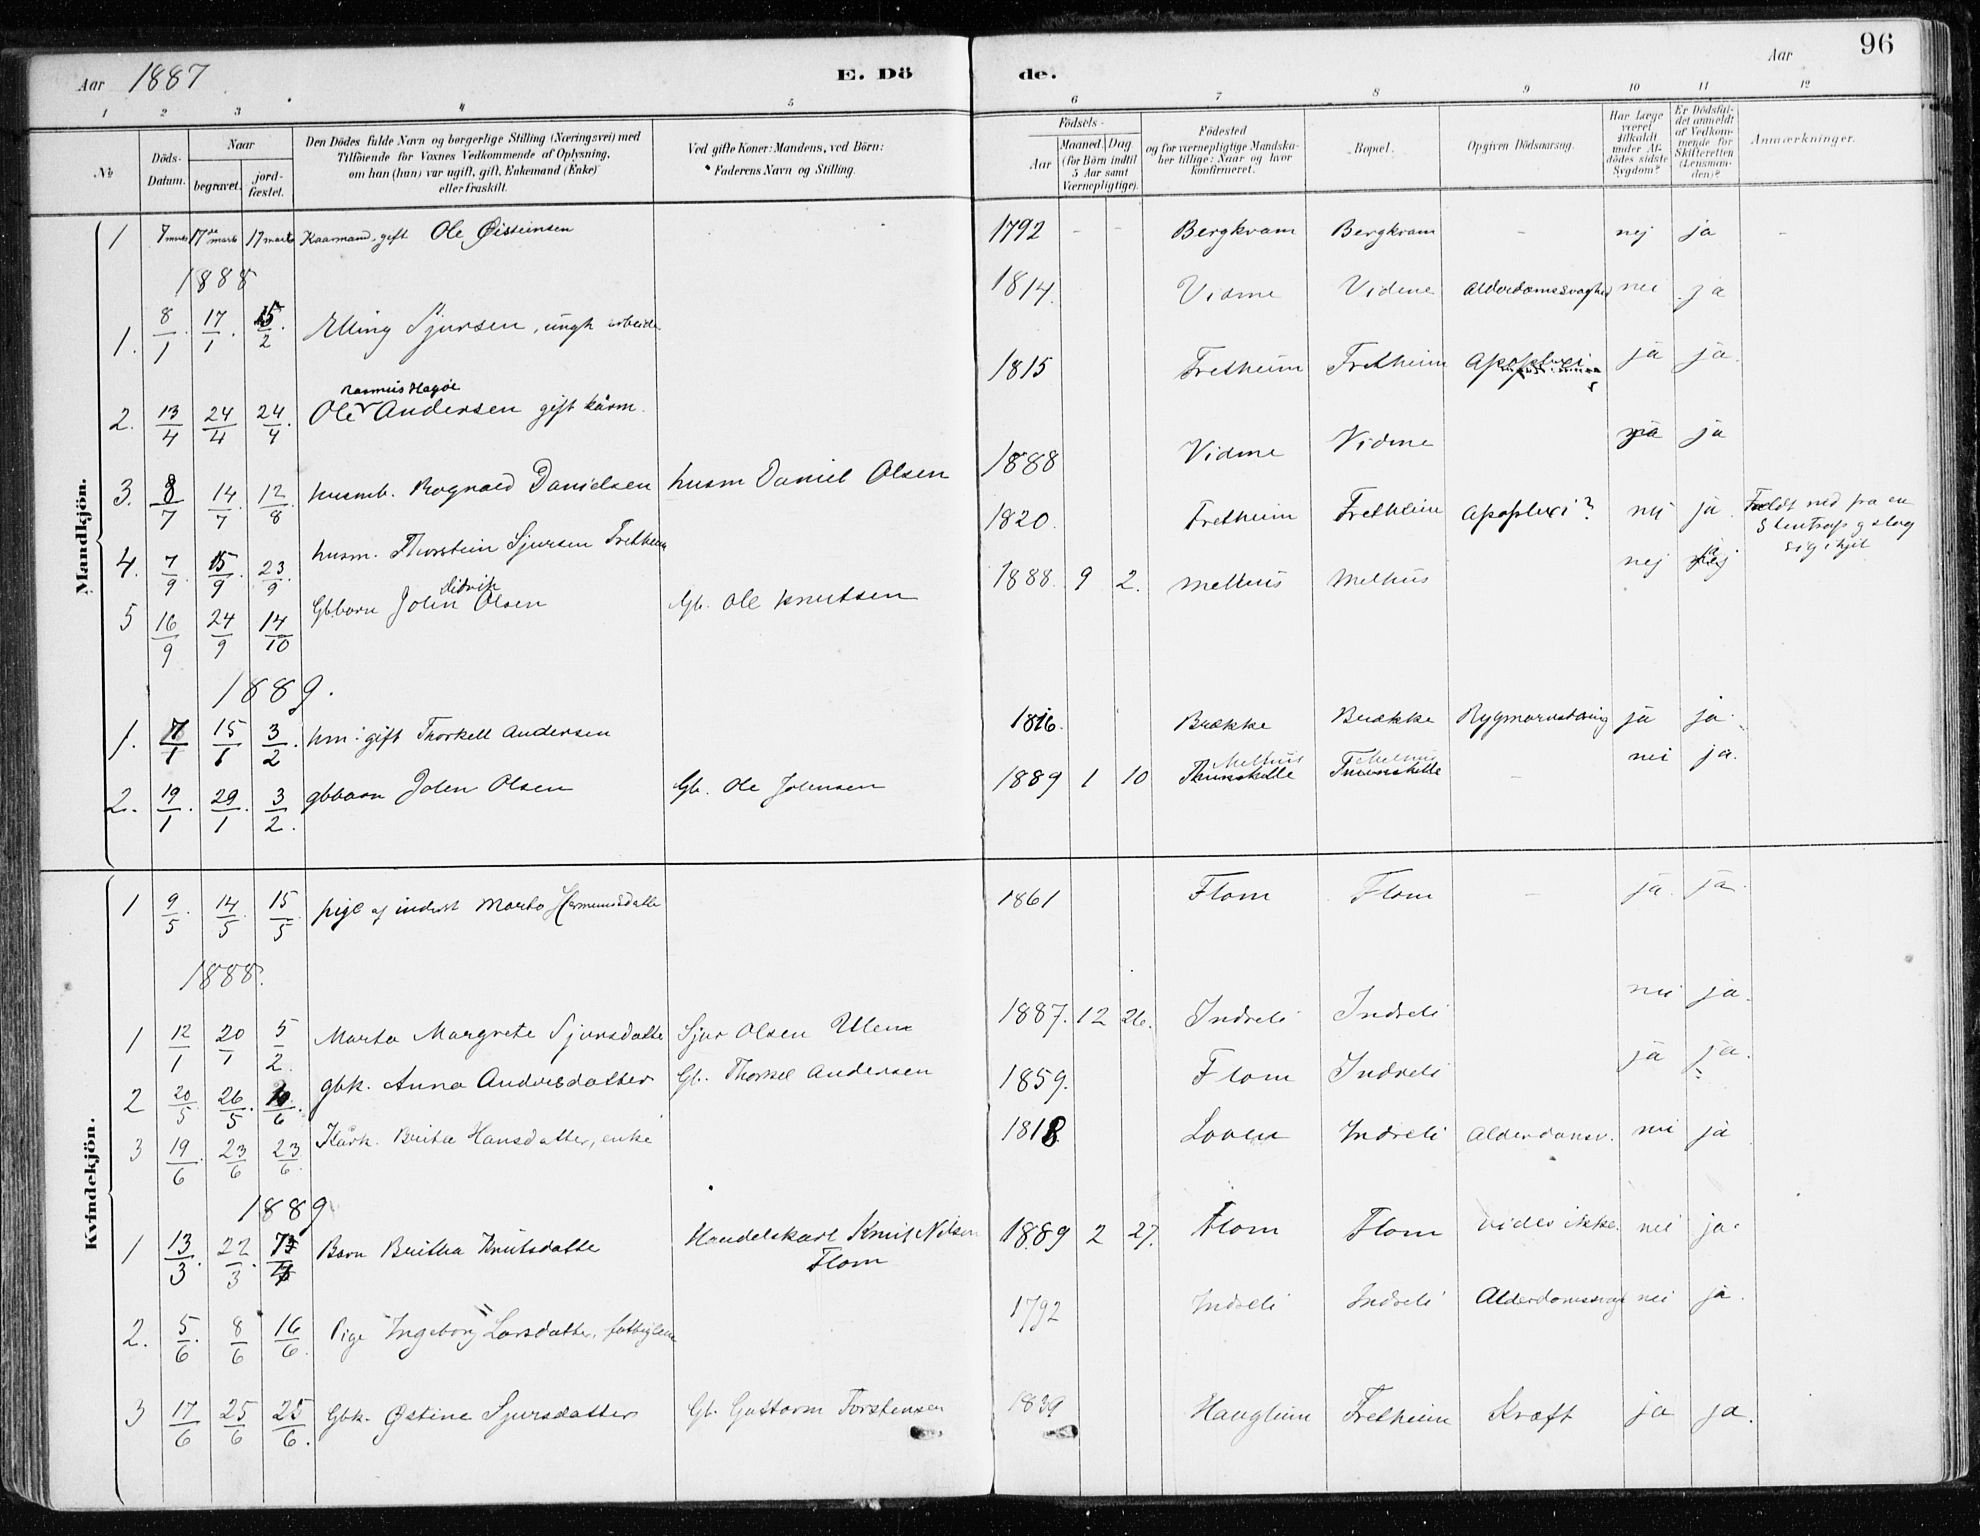 96
Aar 1887 E. Dö de. Aar
1 2 3 4 5 6 7 8 9 10 11 12
No
Döds-Datum.
Naar
begravet.
jordfæstet.
Den Dödes fulde Navn og borgerlige Stilling (Næringsvei) med
Tilföiende for Voxnes Vedkommende af Oplysning,
om han (hun) var ugift, gift, Enkemand (Enke)
eller fraskilt.
Ved gifte Koner: Mandens, ved Börn:
Faderens Navn og Stilling.
Födsels-
Aar
Maaned
Dag
(for Börn indtil
5 Aar samt
Værnepligtige).
Födested
og for værnepligtige Mandskaber tillige: Naar og hvor
konfirmeret.
Bopæl.
Opgiven Dödsaarsag.
Har Læge
været
tilkaldt
under Afdödes sidste
Sygdom?
Er Dödsfaldet anmeldt
af Vedkommende for
Skifteretten
(Lensmanden)?
Anmærkninger.
Mandkjön.
1 7 marts 17de marts 17 marts Kaarmand, gift Ole Øisteinsen 1792 - - Bergkvam Bergkvam - nej ja -
1888
1. 8/1 17/1 15/2 Elling Sjursen, ungk arbeider 1814. Vidme Vidme Alderdomssvaghed nei ja
2. 13/4 24/4 24/4 Ole Rasmus Andersen gift kårm. 1815 Fretheim Fretheim Apoplexi ja ja.
3. 8/7 14/7 12/8 husmb. Rognald Danielsen husm Daniel Olsen 1888 Vidme Vidme ja
4. 7/9 15/9 23/9 husm. Thorstein Sjursen Fretheim 1820. Fretheim Fretheim Apoplexi? nei ja Faldt ned fra en
Stentrap og slog
sig ihjel
5 16/9 24/9 14/10 Gbbarn John Didrik Olsen Gb. Ole Knutsen 1888. 9 2. Melhus Melhus nej ja
1889.
1. 7/1 15/1 3/2 hm: gift Thorkell Andersen 1816. Brække Brække ja ja.
2. 19/1 29/1 3/2. gbbarn John Olsen Gb. Ole Johnsen 1889 1 10 Melhus Melhus - nei ja.
Kvindekjön.
1 9/5 14/5 15/5 pige af inderst Marta Hermundsdatter 1861 Flom Flom - ja. ja.
1888.
1 12/1 20/1 5/2. Marta Margrete Sjursdatter Sjur Olsen 1887. 12 26. Indreli Indreli nei ja.
2 20/5 26/5 10/6 gbk. Anna Andersdatter Gb. Thorkel Andersen 1859. Flom Indreli ja ja.
3 19/6 23/6 23/6. Kårk. Brita Hansdatter, enke 1818 Loven Indreli Alderdomsv. nei ja
1889
1 13/3 22/3 Barn Britha Knutsdatter Handelskarl Knut Nilsen
Flom 1889 2 27. Flom Flom vides ikke. nei ja.
2. 5/6 8/6 16/6. Pige Ingeborg Larsdatter, fattiglem 1792 Indreli Indreli Alderdomssvagh nei ja.
3 17/6 25/6 25/6. Gbk. Østine Sjursdatter Gb. Guttorm Torstensen 1839 Hauglum Fretheim Kræft ja ja.